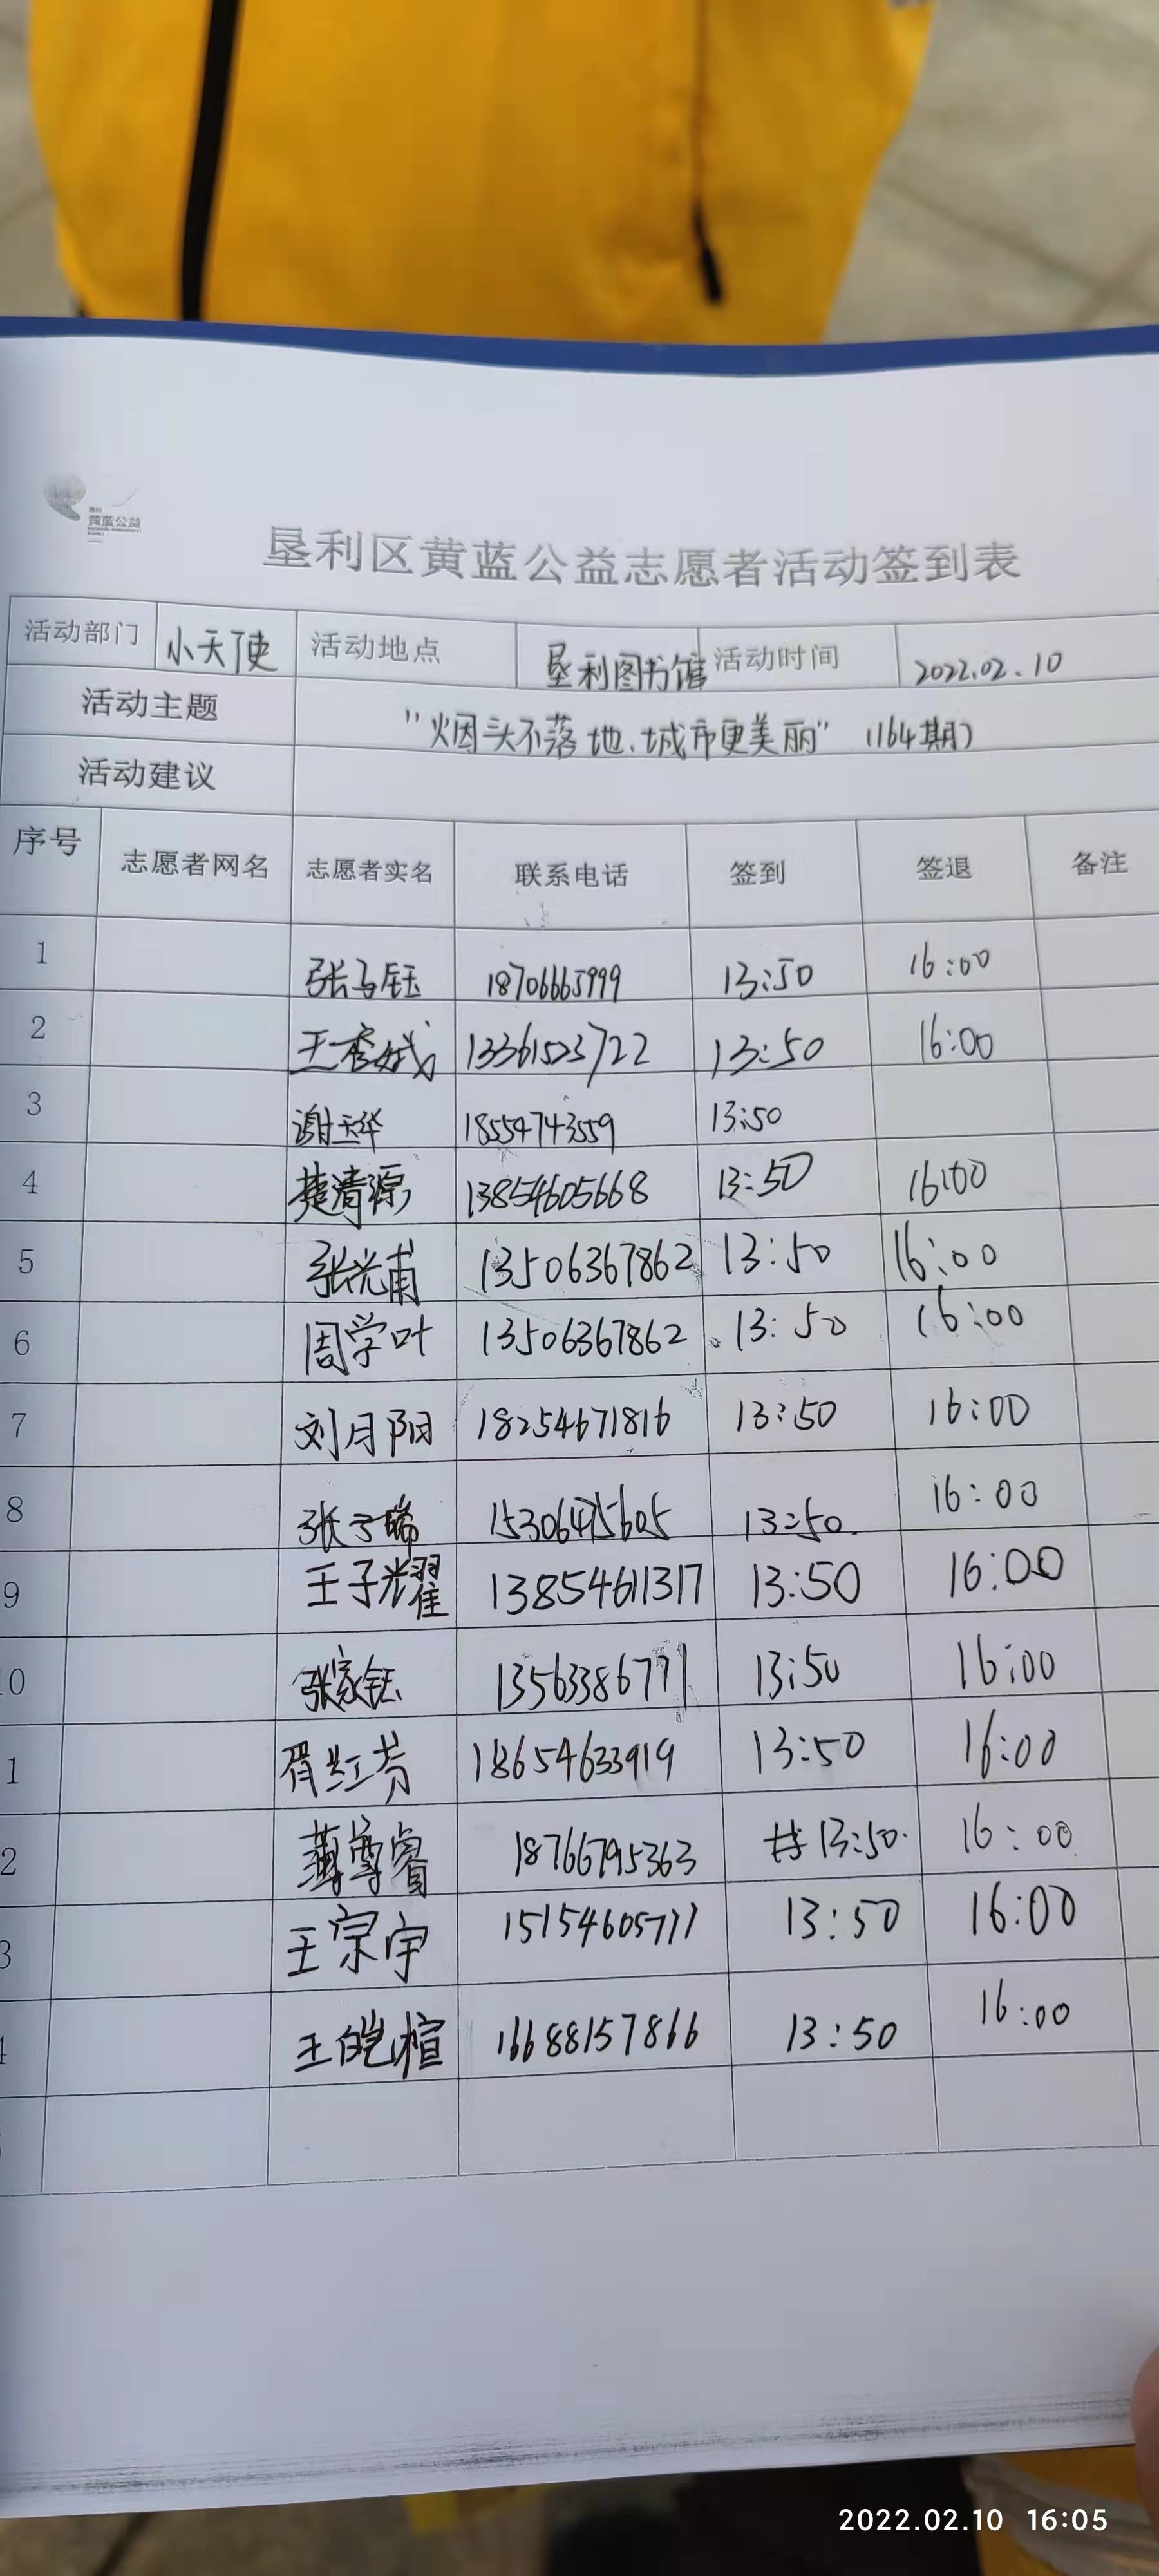 黄蓝公益
垦利区黄蓝公益志愿者活动签到表
活动部门 小天使 活动地点 垦利图书馆 活动时间 2022.02.10
活动主题 "烟头不落地、城市更美丽" (164期)
活动建议
序号 志愿者网名 志愿者实名 联系电话 签到 签退 备注
1 18706665999 13:50 16:00
2 13361523722 13:50 16:00
3 谢玉华 18554743559 13:50
4 楚清源 13854605668 13:50 16:00
5 张光甫 13506367862 13:50 16:00
6 周学叶 13506367862 13:50 16:00
7 刘月阳 18254671816 13:50 16:00
8 张子瑞 13:50 16:00
9 王子耀 13854611317 13:50 16:00
0 张家钰 13563386771 13:50 16:00
1 胥红芳 18654633919 13:50 16:00
2 薄尊睿 18766795363 13:50 16:00
3 王宗宇 15154605777 13:50 16:00
王皑楦 16688157866 13:50 16:00
2022.02.10 16:05